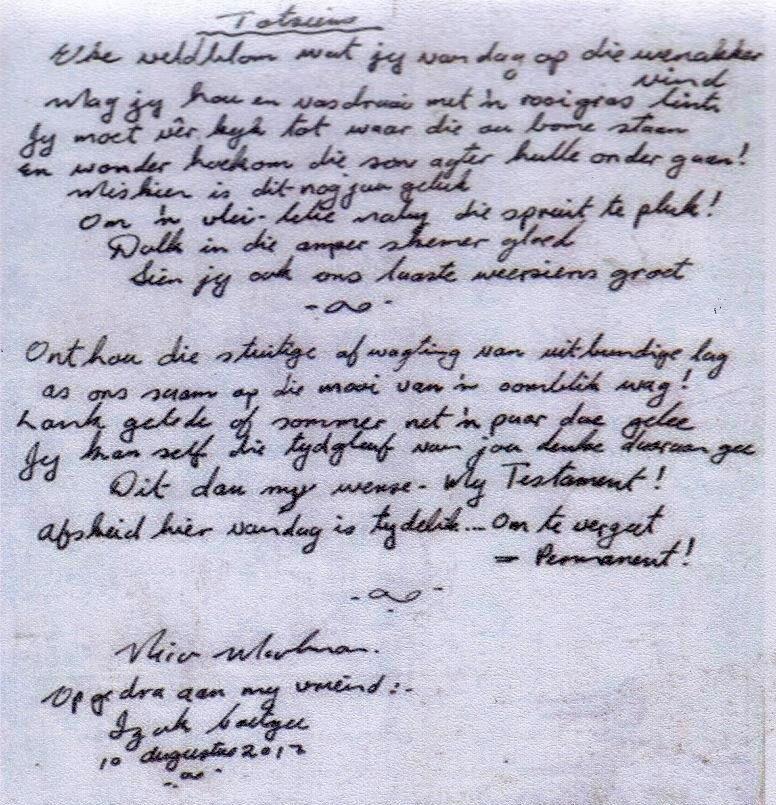 Totsiens
Elke veldblom wat jy vandag op die wenakker
vind
Mag jy hou en vasdraai met 'n rooigras lint
Jy moet vêr kyk tot waar die ou bome staan
En wonder hoekom die son agter hulle onder gaan!
Miskien is dit nog jou geluk
Om 'n vlei-lelie naby die spruit te pluk!
Dalk in die amper skemer gloed
Sien jy ook ons laaste weersiens groet
Onthou die stuitige afwagting van uitbundige lag
as ons saam op die mooi van 'n oomblik wag!
Lank gelede of sommer net 'n paar dae gelee
Jy kan self die tydgleuf van jou denke daaraan gee
Dit dan my wense - My Testament!
Afskeid hier vandag is tydelik... Om te vergeet
= Permanent!
Opgedra aan my vriend:-
Izak Coetzee
10 Augustus 2012